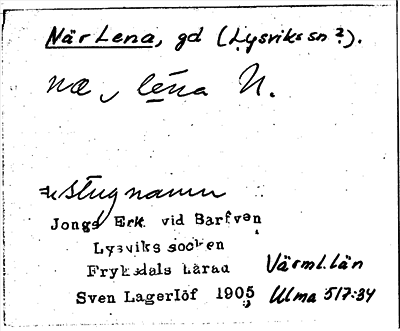 När Lena, gd (Lysviks sn ?).
næ, léna N.
= stugnamn
Jongs Erk. vid Barfven
Lysviks socken
Fryksdals härad
Värml. län
Sven Lagerlöf 1905
Ulma 517:34